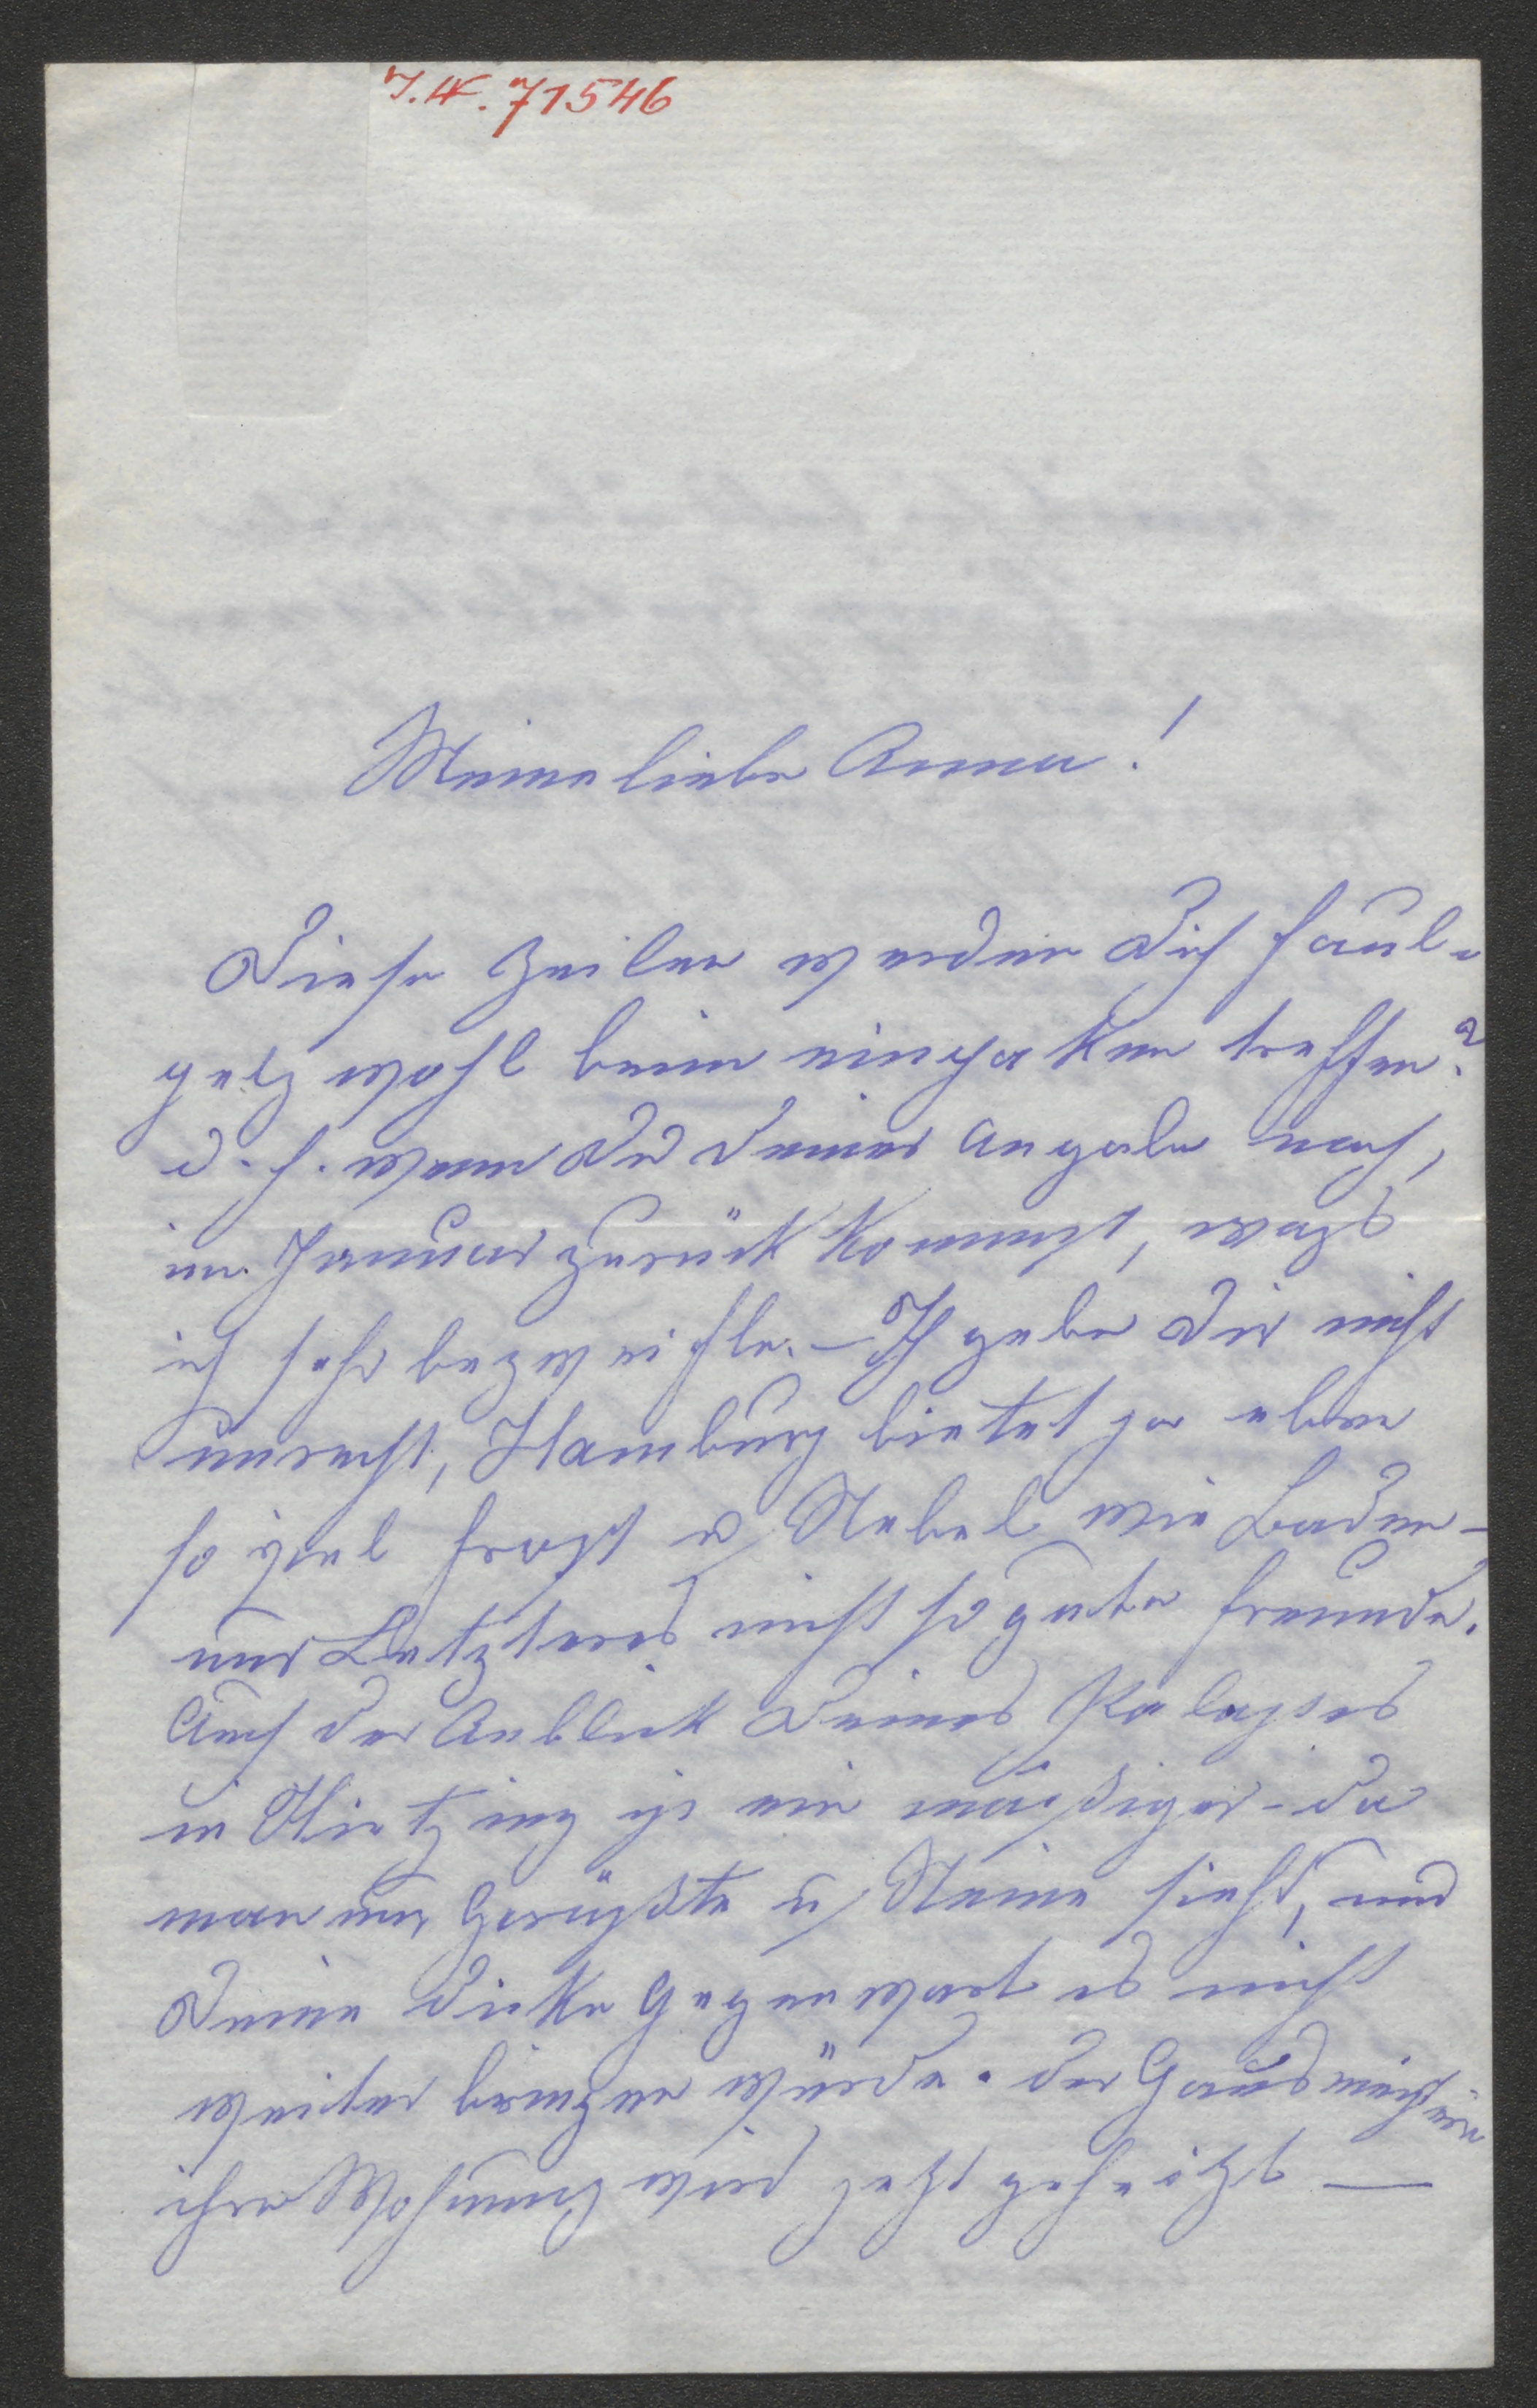 I. N. 71546
Meine liebe Anna!
Diese Zeilen werden Dich Faul-
pelz wohl beim einpaken treffen?
d. h. wenn Du Deiner Angabe nach,
im Januar zurück kommst, was
ich sehr bezweifle. – Ich gebe Dir nicht
unrecht, Hamburg bietet ja eben
so viel Frost u Nebel wie Baden –
nur Letzteres nicht so gute Freunde.
Auch der Anblick Deines Palastes
in Hietzing ist ein mäßiger – da
man nur Gerüste u Steine sieht, und
Deine dicke Gegenwart es nicht
weiter bringen würde. Der Hausmeisterin
ihre Wohnung wird jetzt geheitzt —